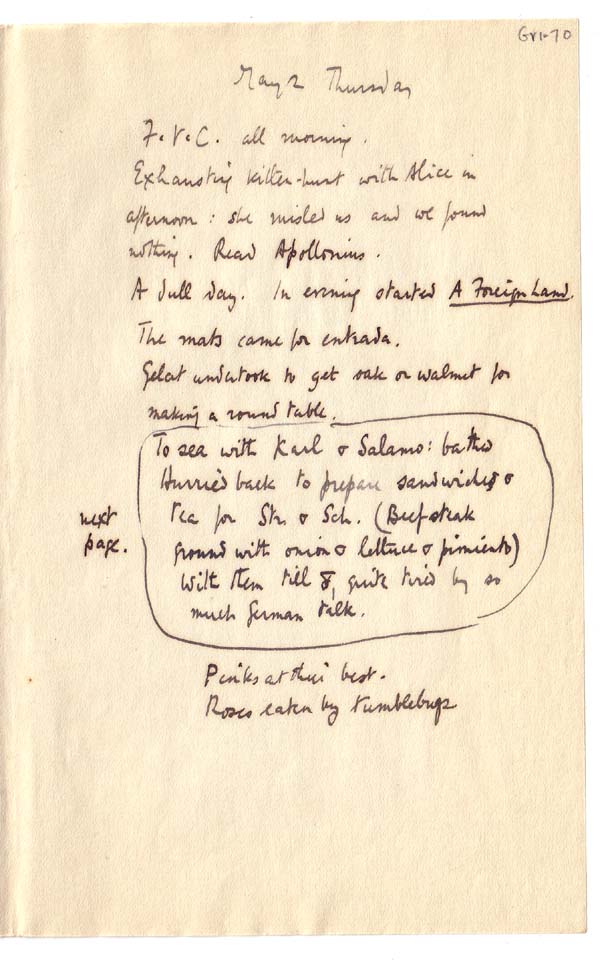 Gr1-70
May 2 Thursday
F.V.C. all morning.
Exhausting kitten-hunt with Alice in
afternoon: she misled us and we found
nothing. Read Apollonius.
A dull day. In evening started A Foreign Land.
The mats came for entrada.
Gelat undertook to get oak or walnut for
making a round table.
To sea with Karl & Salamo: bathed
Hurried back to prepare sandwiches &
tea for Str. & Sch. (Beef-steak
ground with onion & lettuce & pimiento)
With them till 8, quite tired by so
much German talk.
next
page.
Pinks at their best.
Roses eaten by tumblebugs